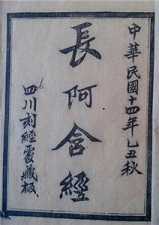 中華民國十四年乙丑秋
長阿含經
四川刻經處藏板